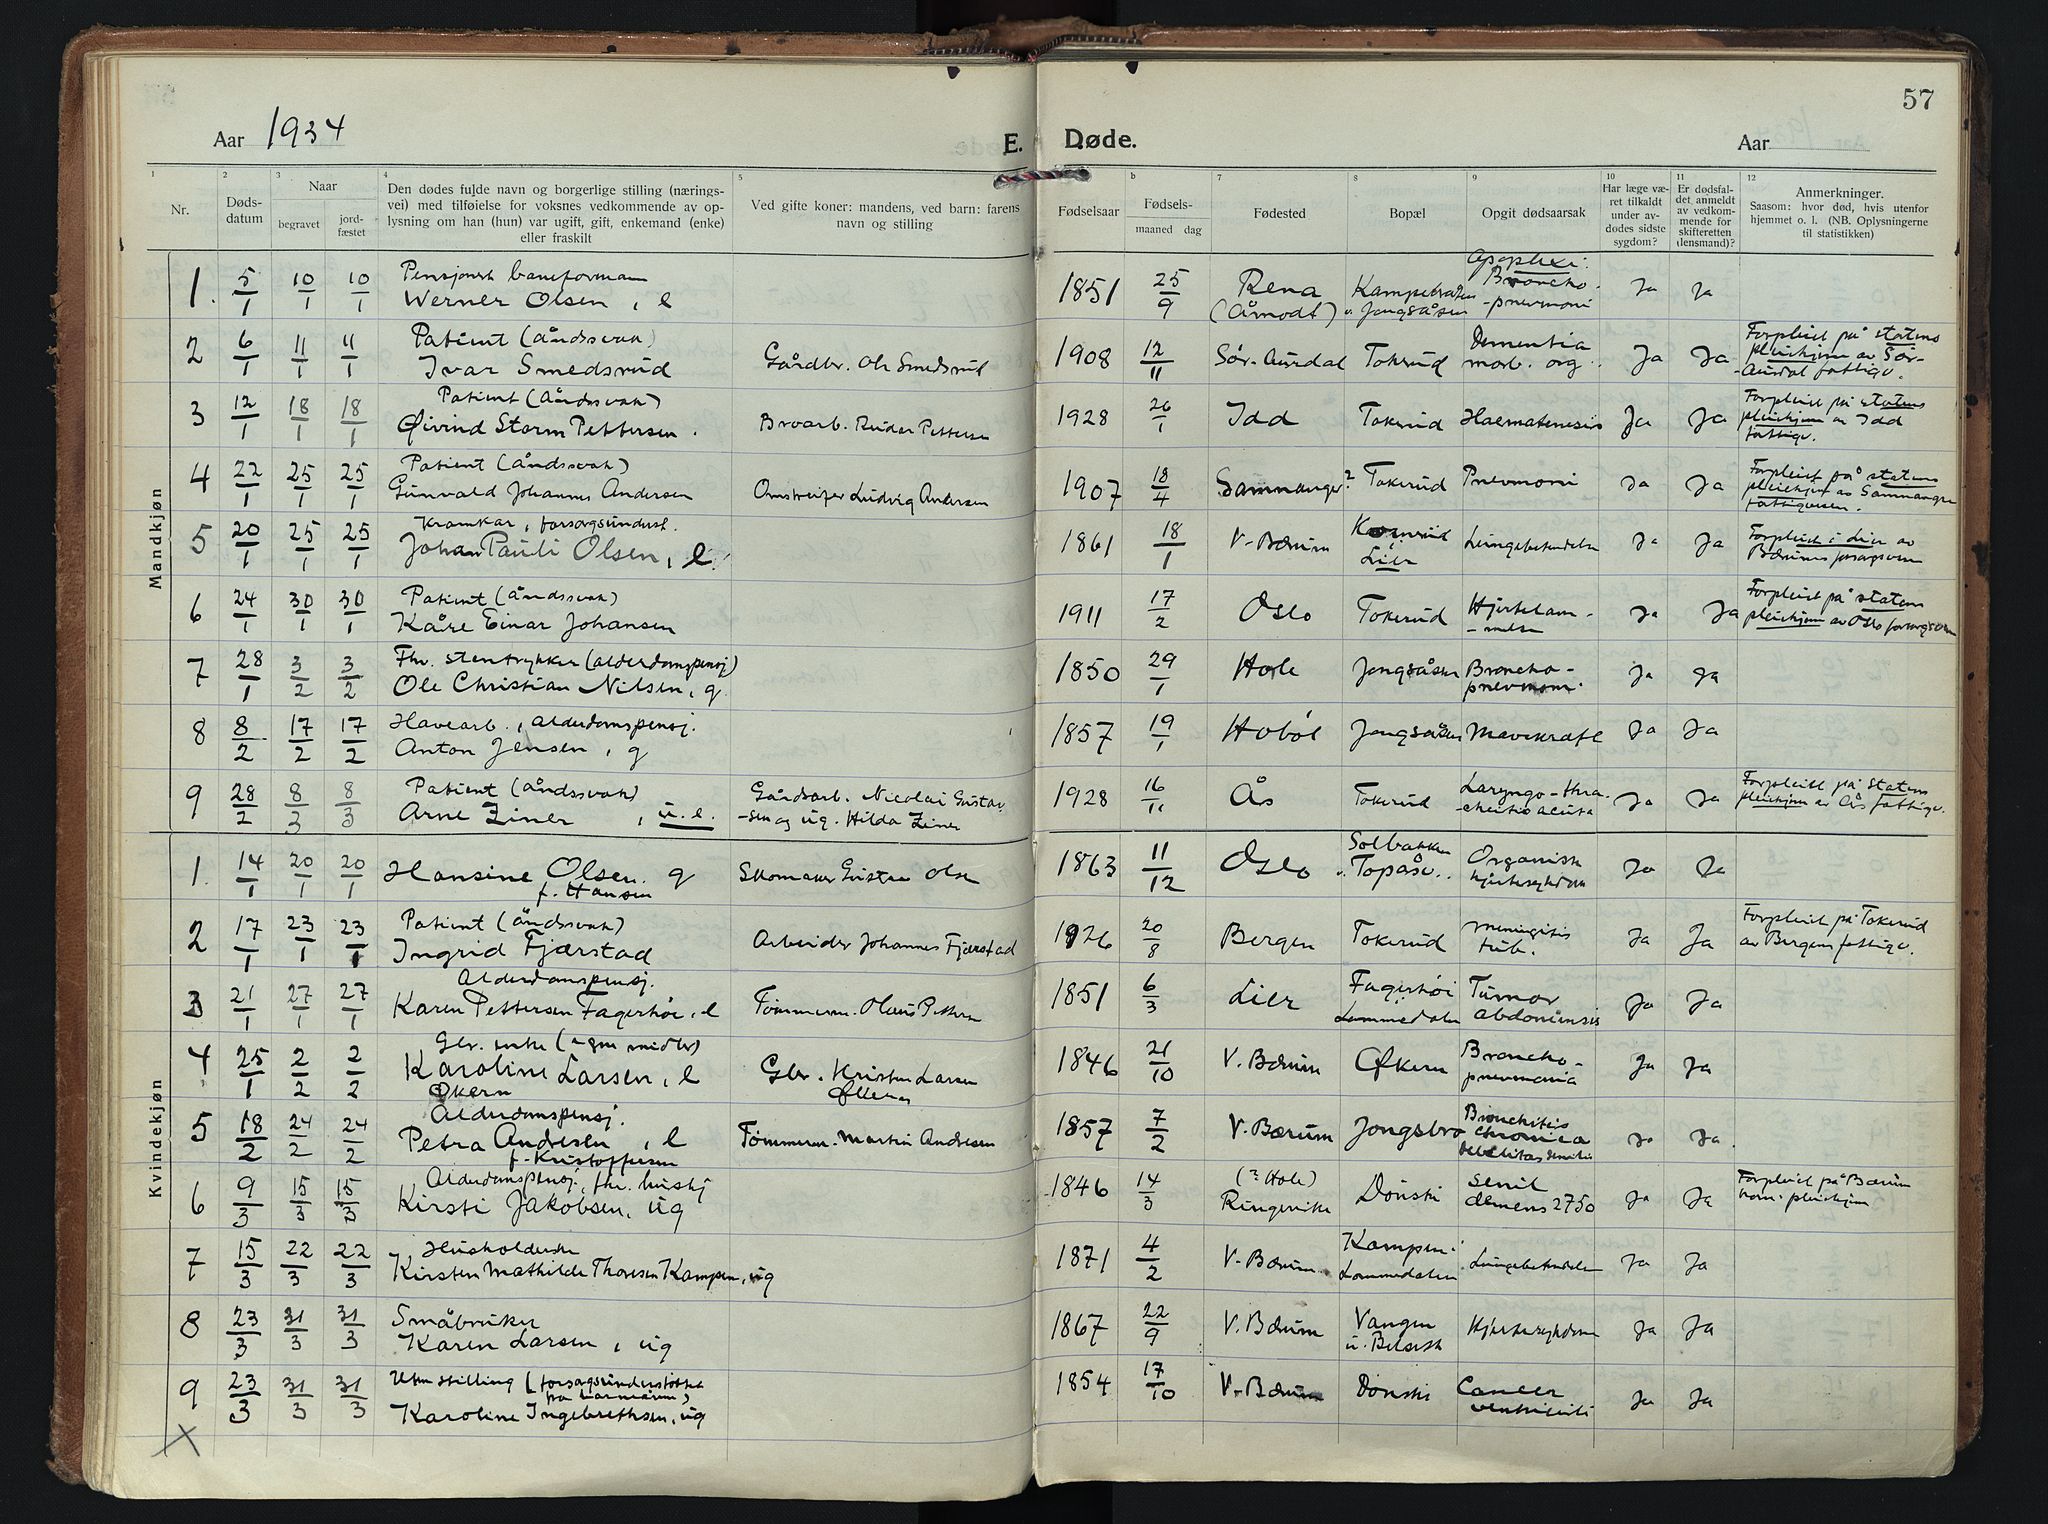 57
Aar 1934
E. Døde.
Aar
1 2 3 4 5
Nr. Dødsdatum Naar begravet jordfæstet
Den dødes fulde navn og borgerlige stilling (næringsvei) med tilføielse for voksnes vedkommende av oplysning om han (hun) var ugift, gift, enkemand (enke) eller fraskilt
Ved gifte koner: mandens, ved barn: farens navn og stilling
b 7 8 9 10 11 12
Fødselsaar Fødselsmaaned dag Fødested Bopæl Opgit dødsaarsak
Har læge været tilkaldt under avdødes sidste sygdom?
Er dødsfaldet anmeldt av vedkommende for skifteretten (lensmand)?
Anmerkninger.
Saasom: hvor død, hvis utenfor hjemmet o. l. (NB. Oplysningerne til statistikken)
Mandkjøn
1. 5/1 10/1 10/1 Pensjonert baneformann
Werner Olsen, e
1851 25/9 Rena (Åmodt) Jongsåsen Apoplexi: Broncho-pnevmoni Ja Ja
2 6/1 11/1 11/1 Patient (åndssvak)
Ivar Smedsrud Gårdbr. Ole Smedsrud
1908 12/11 Sør-Aurdal Tokerud Dementia morb. org. Ja Ja Forpleiet på statens pleiehjem av Sør-Aurdal fattigv.
3 12/1 18/1 18/1 Patient (åndssvak)
Øivind Storm Pettersen. Reidar Pettersen
1928 26/1 Idd Tokerud Haematemesis Ja Ja Forpleiet på statens pleiehjem av Idd fattigv.
4 22/1 25/1 25/1 Patient (åndssvak)
Gunvald Johannes Andersen Omstreifer Ludvig Andersen
1907 18/4 Samnanger? Tokerud Pnevmoni Ja Ja Forpleiet på statens pleiehjem av Samnanger fattigvesen.
5 20/1 25/1 25/1 forsorgsunderst.
Johan Pauli Olsen, e
1861 18/1 V-Bærum Lier Lungebetendelse Ja Ja Forpleiet i Lier av Bærums forsorgsvesen
6 24/1 30/1 30/1 Patient (åndssvak)
Kåre Einar Johansen
1911 17/2 Oslo Tokerud Hjertelammelse Ja Ja Forpleiet på statens pleiehjem av Oslo forsorgsvesen
7 28/1 3/2 3/2 Fhv. stentrykker (alderdomspensj)
Ole Christian Nilsen, g.
1850 29/1 Hole Jongsåsen Broncho-pnevmoni Ja Ja
8 8/2 17/2 17/2 Havearb., alderdomspensj.
Anton Jensen, g
1857 19/1 Hobøl Jongsåsen Mavekraft Ja Ja
9 28/2 8/3 8/3 Patient (åndssvak)
Arne Ziner, u.e. Gårdsarb. Nicolai Gustavsen og ug. Hilda Ziner
1928 16/11 Ås Tokerud Laryngo-tracheitis acuta Ja Ja Forpleiet på Statens pleiehjem av Ås fattigv.
Kvindekjøn
1. 14/1 20/1 20/1 Hansine Olsen. g
f. Hansen Skomaker Gustav Olsen
1863 11/12 Oslo Solbakken v. Topåsv.. Organisk hjertesykdom Ja Ja
2 17/1 23/1 23/1 Patient (åndssvak)
Ingrid Fjærstad Arbeider Johannes Fjærstad
1926 20/8 Bergen Tokerud Meningitis tub. Ja Ja Forpleiet på Tokerud av Bergens fattigv.
3 21/1 27/1 27/1 Alderdomspensj.
Karen Pettersen Fagerhøi, e Tømmerm. Olaus Pettersen
1851 6/3 Lier Fagerhøi Lommedalen Tumor abdominis Ja Ja
4 25/1 2/2 2/2 Gbr. enke (egne midler)
Karoline Larsen, e
Økern Gbr. Kristen Larsen
1846 21/10 V. Bærum Økern Broncho-pnevmonia Ja Ja
5 18/2 24/2 24/2 Alderdomspensj.
Petra Andresen, e
f. Kristoffersen Tømmerm. Martin Andresen
1857 7/2 V. Bærum Jongsbro Bronchitis chronica debilitas senilis Ja Ja
6 9/3 15/3 15/3 Alderdomspensj. fhv. hushj
Kirsti Jakobsen, ug
1846 14/3 (? Hole) Ringerike Dønski Senil demens 2750 Ja Ja Forpleiet på Bærum kom. pleiehjem
7 15/3 22/3 22/3 Husholderske
Kirsten Mathilde Thoresen Kampen, ug
1871 4/2 V. Bærum Kampen i Lommedalen Lungebetendelse Ja Ja
8 23/3 31/3 31/3 Småbruker
Karen Larsen, ug
1867 22/9 V. Bærum Vangen u. Belset Hjertesykdom Ja Ja
9 23/3 31/3 31/3 Uten stilling (forsorgsunderstøttet fra kommunen)
Karoline Ingebrethsen, ug
1854 17/10 V. Bærum Dønski Cancer ventriculi Ja Ja
X